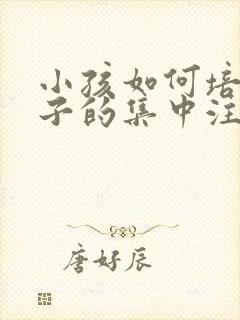 小孩如何培
子的集中注
唐好辰